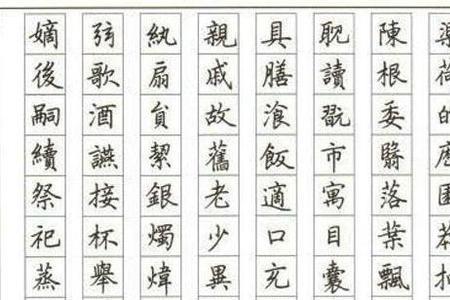 渠荷的歷園莽抽
陳根委翳落葉飄
耽讀翫市寓目囊
具膳湌飯適口充
親戚故舊老少異
紈扇貟絜銀燭煒
弦歌酒讌接杯舉
嫡後嗣續祭祀蒸